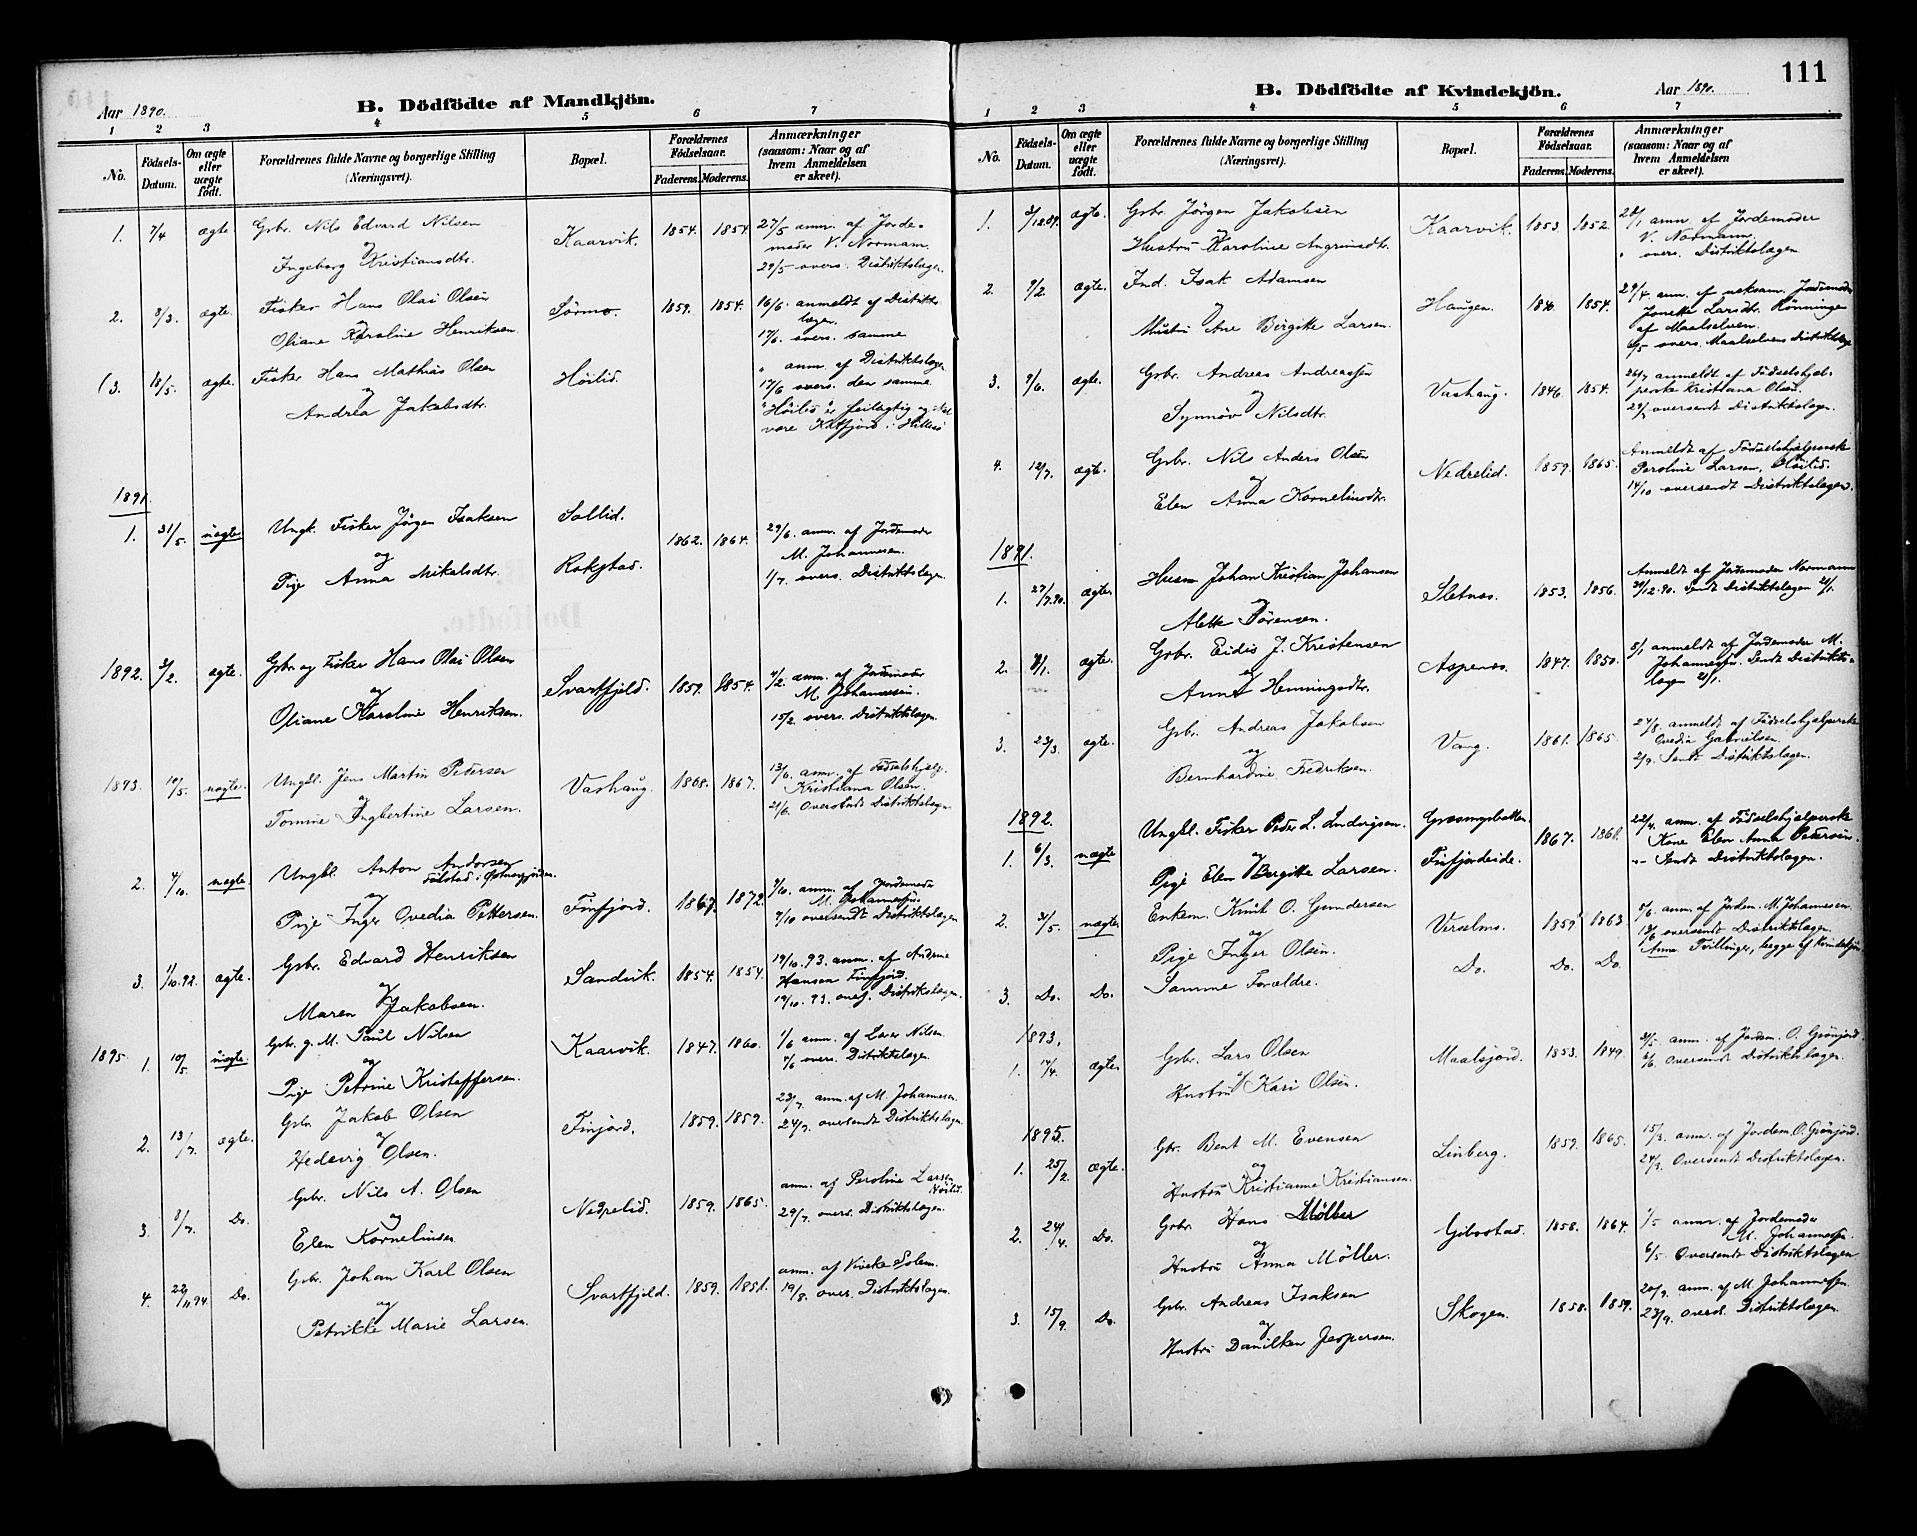 Aar 1890.
B. Dödfödte af Mandkjön.
1 2 3 4 5 6 7
No.
Födsels-Datum.
Om ægte eller uægte födt.
Forældrenes fulde Navne og borgerlige Stilling
(Næringsvei).
Bopæl.
Forældrenes Födselsaar.
Faderens. Moderens.
Anmærkninger
(saasom: Naar og af
hvem Anmeldelsen
er skeet).
1. 7/4 ægte Gbr. Nils Edvard Nilsen og Ingeborg Kristiansdtr. Kaarvik. 1854. 1854. 27/5 anm. af Jorde-
moder V. Normann.
29/5 overs. Distriktslægen.
2. 8/3. ægte. Fisker Hans Olai Olsen og Oliane Karoline Henriksen Sørmo. 1859. 1854. 16/6. anmeldt af Distrikts
lægen.
17/6. overs. samme
3. 18/5. ægte. Fisker Hans Mathias Olsen og Andrea Jakobsdtr. Höilid. " anm. af Distriktslægen
17/6 overs. den samme
"Höilid" er feilagtig og skal
være Katfjord i Hillesö
1891.
1. 31/5. uægte. Ungk. Fisker Jørgen Isaksen og Pige Anna Mikalsdtr. Sollid. Rokstad. 1862. 1864. 29/6. anm. af Jordemoder
M. Johannesen.
1/7. overs. Distriktslægen.
1892. 3/2. ægte. Gbr. og Fisker Hans Olai Olsen og Oliane Karoline Henriksen. Svartfjeld. 1859. 1854. 4/2. anm. af Jordemoder
M. Johannessen.
15/2. overs. Distriktslægen.
1893. 10/5. uægte. Ungkl. Jens Martin Petersen og Tomine Ingbertine Larsen. Vashaug. 1868. 1867. 13/6. anm. af Fødselshjelp.
Kristiana Olsen.
21/6. Oversendt Distriktslægen
2. 4/10. uægte. Ungkl. Anton Andorsen og Pige Inger Ovedia Pettersen. Finfjord. 1867. 1872. 7/10. anm. af Jordemoder
M. Johannesen.
7/10 oversendt Distriktslægen
3. 1/10.92. ægte. Gbr. Edvard Henriksen og Maren Jakobsen. Sandvik. 1854. 1854. 19/10. 93. anm. af Andrine
Hansen Finfjord.
19/10. 93. overs. Distriktslægen.
1895. 1. 10/5. uægte. Gbr. g. M. Paul Nilsen og Pige Petrine Kristoffersen. Kaarvik. 1847. 1860. 1/6 anm. af Nilsen.
4/6 overs. Distriktslægen.
2. 13/7. ægte. Gbr. Jakob Olsen og Hedevig Olsen. Finjord. 1859. 1859. 23/7. anm. af M. Johannesen.
24/7. oversendt Distriktslægen.
3. 8/7. Do. Gbr. Nils A. Olsen og Elen Kornelinsen Nedrelid. 1859. 1865. anm. af Peroline Larsen Höilid.
29/7. overs. Distriktslægen.
4. 22/11.94. Do. Gbr. Johan Karl Olsen og Petrikke Marie Larsen. Svartfjeld. 1859. 1851. anm. af Vivike Solem.
19/8. over. Distriktslægen.
111
B. Dödfödte af Kvindekjön.
Aar 1890.
1 2 3 4 5 6 7
No.
Födsels-Datum.
Om ægte eller uægte födt.
Forældrenes fulde Navne og borgerlige Stilling
(Næringsvei).
Bopæl.
Forældrenes Födselsaar.
Faderens. Moderens.
Anmærkninger
(saasom: Naar og af
hvem Anmeldelsen
er skeet).
1. 3/12.89. ægte. Gbr. Jørgen Jakobsen og Hustru Karoline Angrimsdtr. Kaarvik. 1853. 1852. 28/1 anm. af Jordemoder
V. Normann.
" overs. Distriktslægen
2. 9/2. ægte. Ind. Isak Adamsen og Hustru Ane Birgitte Larsen. Haugen. 1854. 29/4. anm. af neksam. Jordemoder
Jonette Larsdtr. Rönningen
af Maalselven.
6/5 overs. Maalselvens Distriktslæge
3. 9/6. ægte. Gbr. Andreas Andreassen og Synnöv Nilsdtr. Vashaug. 1846. 1854. 26/7 anmeldt af Födselshjel-
perske Kristiana Olsen.
29/7 oversendt Distriktslægen.
4. 12/7. ægte. Gbr. Nils Anders Olsen og Elen Anna Kornelinsdtr. Nedrelid. 1859. 1865. Anmeldt af Födselshjelperske
Peroline Larsen, Höilid.
14/10 oversendt Distriktslægen.
1891.
1. 27/7.90. ægte. Husm Johan Kristian Johansen og Alette Sørensen. Sletnæs. 1853. 1856. Anmeldt af Jordemoder Normann
30/12.90. Sendt Distriktslægen 21/1.
2. 8/1. ægte. Gbr. Eidis J. Kristensen og Anne Henningsdtr. Aspenæs. 1847. 1850. 8/1 anmeldt af Jordemoder M.
Johannessen. Sendt Distrikts-
lægen 21/1.
3. 23/3. ægte. Gbr. Andreas Jakobsen og Bernhardine Fredriksen. Vang. 1861. 1865. 24/8. anmeldt af Fødselshjelperske
Ovedia Gabrielsen.
2/9. Sendt Distriktslægen.
1892.
1. 6/3. uægte Ungkl. Fisker Peder L. Ludvigsen. og Pige Elen Bergitte Larsen. Græsmyrbakken Finfjordeide. 1867. 1861. 22/4. anm. af Födselshjelperske
Kone Elen Anna Petersen.
-"- Sendt Distriktslægen.
2. 31/5. uægte. Enkem. Knut O. Gundersen og Pige Inger Olsen. Verselmo. 1859 1863 5/6. anm. af Jordem. M. Johannesen.
13/6 oversendt Distriktslægen.
Anm Tvillinger, begge af Kvindekjön
3. Do. Do. Samme Forældre. Do. Do. Do.
1893.
1. 14/4. ægte. Gbr. Lars Olsen og Hustru Kari Olsen. Maalsjord. 1853. 1849. 31/5. anm. af Jordem. O. Grönjord.
6/6. Oversendt Distriktslægen.
1895.
1. 25/2. Ægte. Gbr. Bent M. Evensen og Hustru Kristianne Kristiansen. Linberg. 1859. 1865. 15/3. anm. af Jordem. O. Grönjord.
24/3. Oversendt Distriktslægen.
2. 24/4. Do. Gbr. Hans Möller og Hustru Anna Möller. Gibostad. 1858. 1864. 1/5 anm. af Jordemoder
M. Johannesen.
6/5. Oversendt Distriktslægen
3. 15/9. Do. Gbr. Andreas Isaksen og Hustru Danilken Jespersen. Skogen. 1858. 1859. 20/9. anm. af M. Johannessen.
23/9. overs. Distriktslægen.